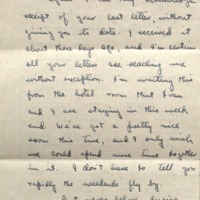 receipt of your last letter without
giving you its date. I received it
about three days ago, and I'm certain
all your letters are reaching me
without exception. I'm writing this
from the hotel room that Fran
and I are staying in this week
end. We've got a pretty nice
room this time, and I only wish
we could spend more time together
in it. I don't have to tell you
rapidly the weekends fly by.
But never before during